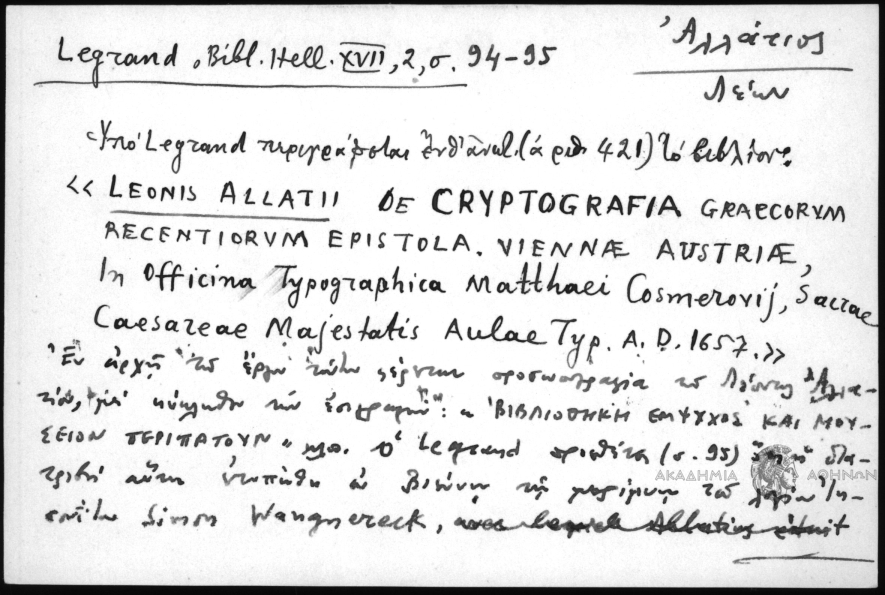 Legrand, Bibl. Hell. XVII, 2, σ. 94-95
Ἀλλάτιος
Λέων
Ὑπό Legrand περιγράφεται ἐνθ' ἀνωτ. (ἀριθ. 421) τό βιβλίον:
<< LEONIS ALLATII DE CRYPTOGRAFIA GRAECORVM
RECENTIORVM EPISTOLA. VIENNÆ AUSTRIÆ,
In Officina Typographica Matthaei Cosmerovij, Sacrae
Caesareae Majestatis Aulae Typ. A. D. 1657.>>
Ἐν ἀρχῇ τοῦ ἔργου τούτου φέρεται προσωπογραφία τοῦ Λέοντος Ἀλλα-
τίου, μέ κύκλωθεν τήν ἐπιγραφήν: « ΒΙΒΛΙΟΘΗΚΗ ΕΜΨΥΧΟΣ ΚΑΙ ΜΟΥ-
ΣΕΙΟΝ ΠΕΡΙΠΑΤΟΥΝ » Ὁ Legrand προσθέτει (σ. 95) ὅτι ἡ δια-
τριβή αὕτη ἐτυπώθη ἐν Βιέννῃ τῇ μερίμνῃ τοῦ λογίου Ἰη-
σουΐτου Simon Wangnereck,
ΑΚΑΔΗΜΙΑ ΑΘΗΝΩΝ